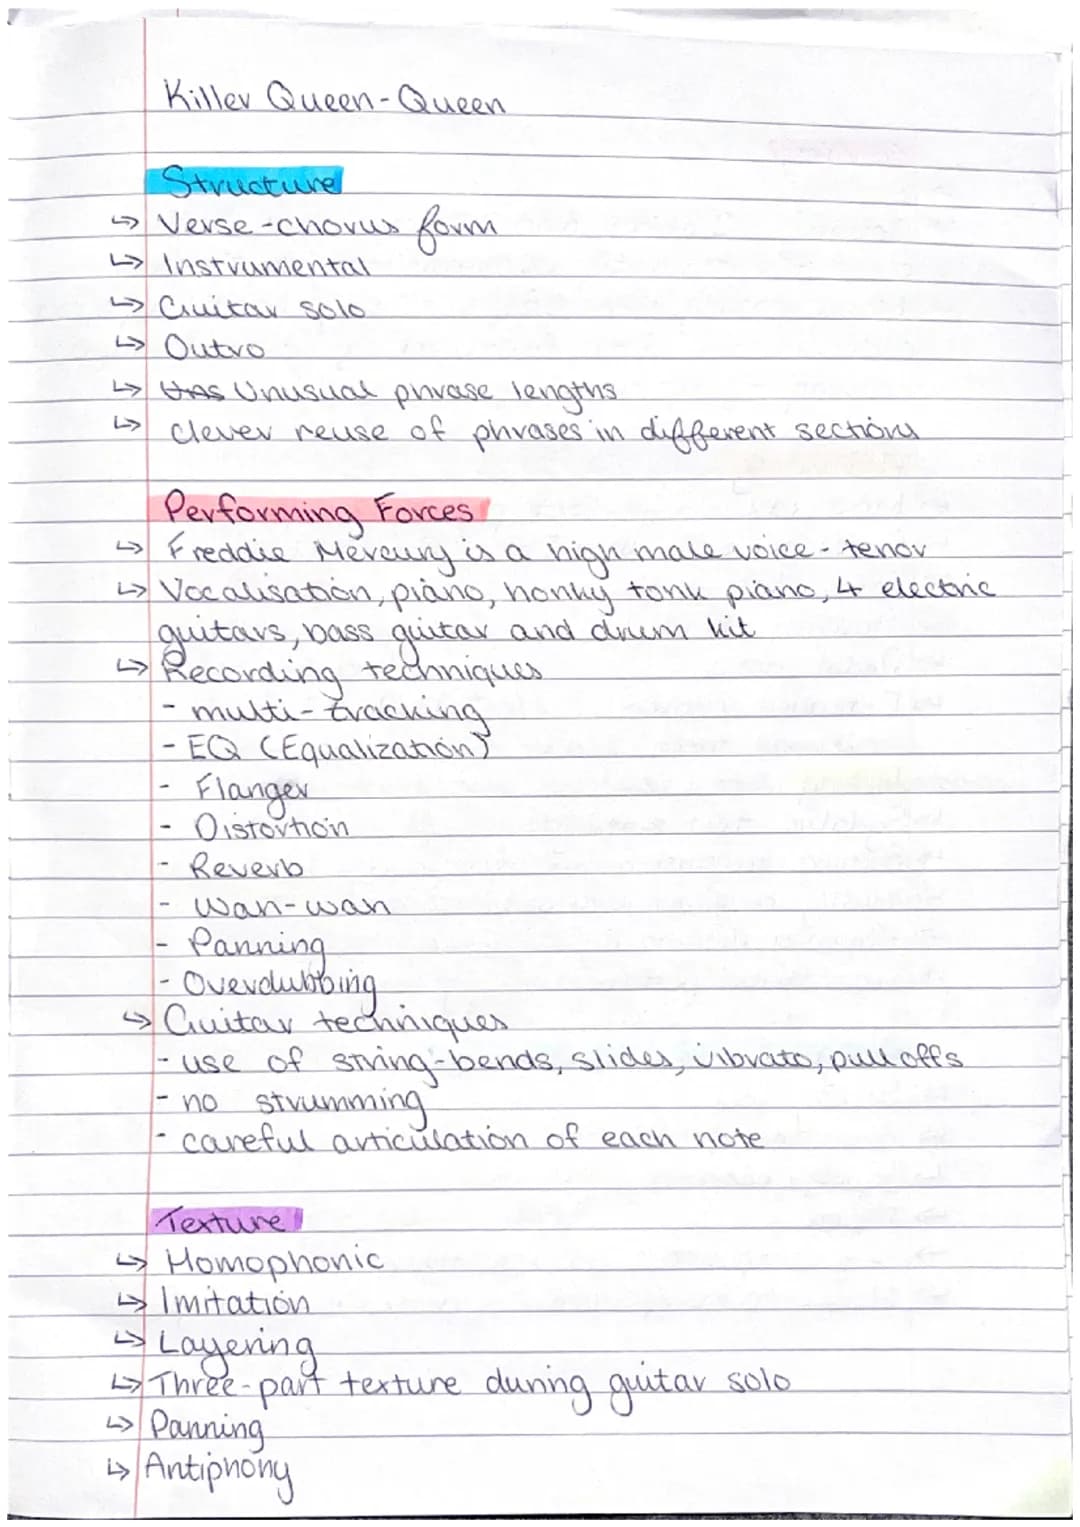 Killer Queen-Queen
Structure
↳ Verse-chorus form
↳ Instrumental
↳ Guitar solo
↳ Outro
↳ Has Unusual phrase lengths
↳ clever reuse of phrases in different sections
Performing Forces
↳ Freddie Mercury is a high male voice - tenor
↳ Vocalisation, piano, honky tonk piano, 4 electric
guitars, bass guitar and drum kit
↳ Recording techniques
- multi-tracking
- EQ (Equalization)
- Flanger
- Distortion
- Reverb
- Wah-wah
- Panning
- Overdubbing
↳ Guitar techniques
- use of string-bends, slides, vibrato, pull offs
- no strumming
- careful articulation of each note
Texture
↳ Homophonic
↳ Imitation
↳ Layering
↳ Three-part texture during guitar solo
↳ Panning
↳ Antiphony